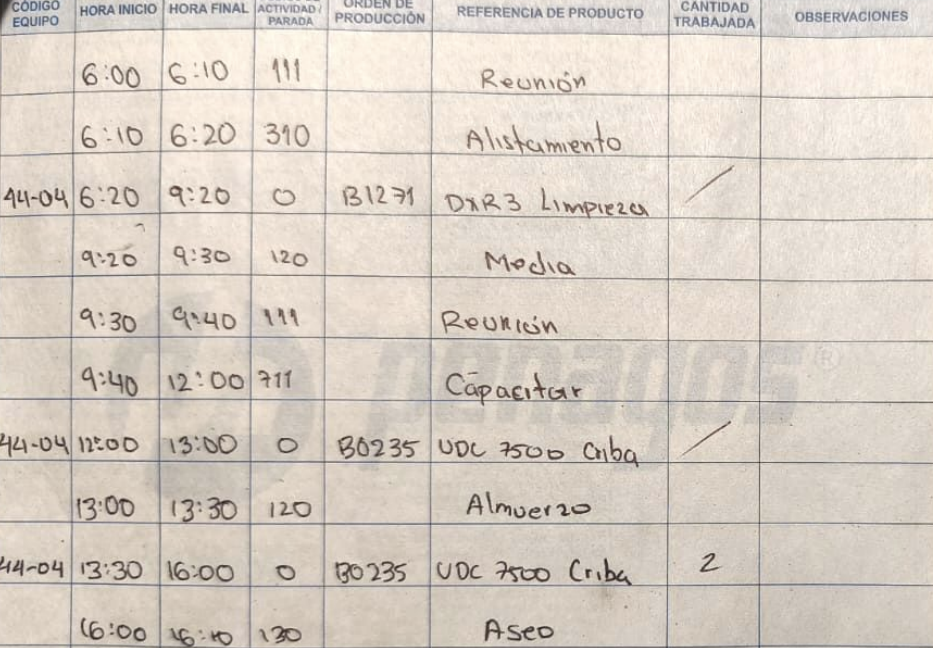 CÓDIGO EQUIPO HORA INICIO HORA FINAL ACTIVIDAD / PARADA ORDEN DE PRODUCCIÓN REFERENCIA DE PRODUCTO CANTIDAD TRABAJADA OBSERVACIONES
6:00 6:10 111 Reunión
6:10 6:20 310 Alistamiento
44-04 6:20 9:20 0 B1271 DXR3 Limpieza /
9:20 9:30 120 Media
9:30 9:40 111 Reunión
9:40 12:00 711 Capacitar
44-04 12:00 13:00 0 B0235 UDC 7500 Criba /
13:00 13:30 120 Almuerzo
44-04 13:30 16:00 0 B0235 UDC 7500 Criba 2
16:00 16:10 130 Aseo
penagos ®